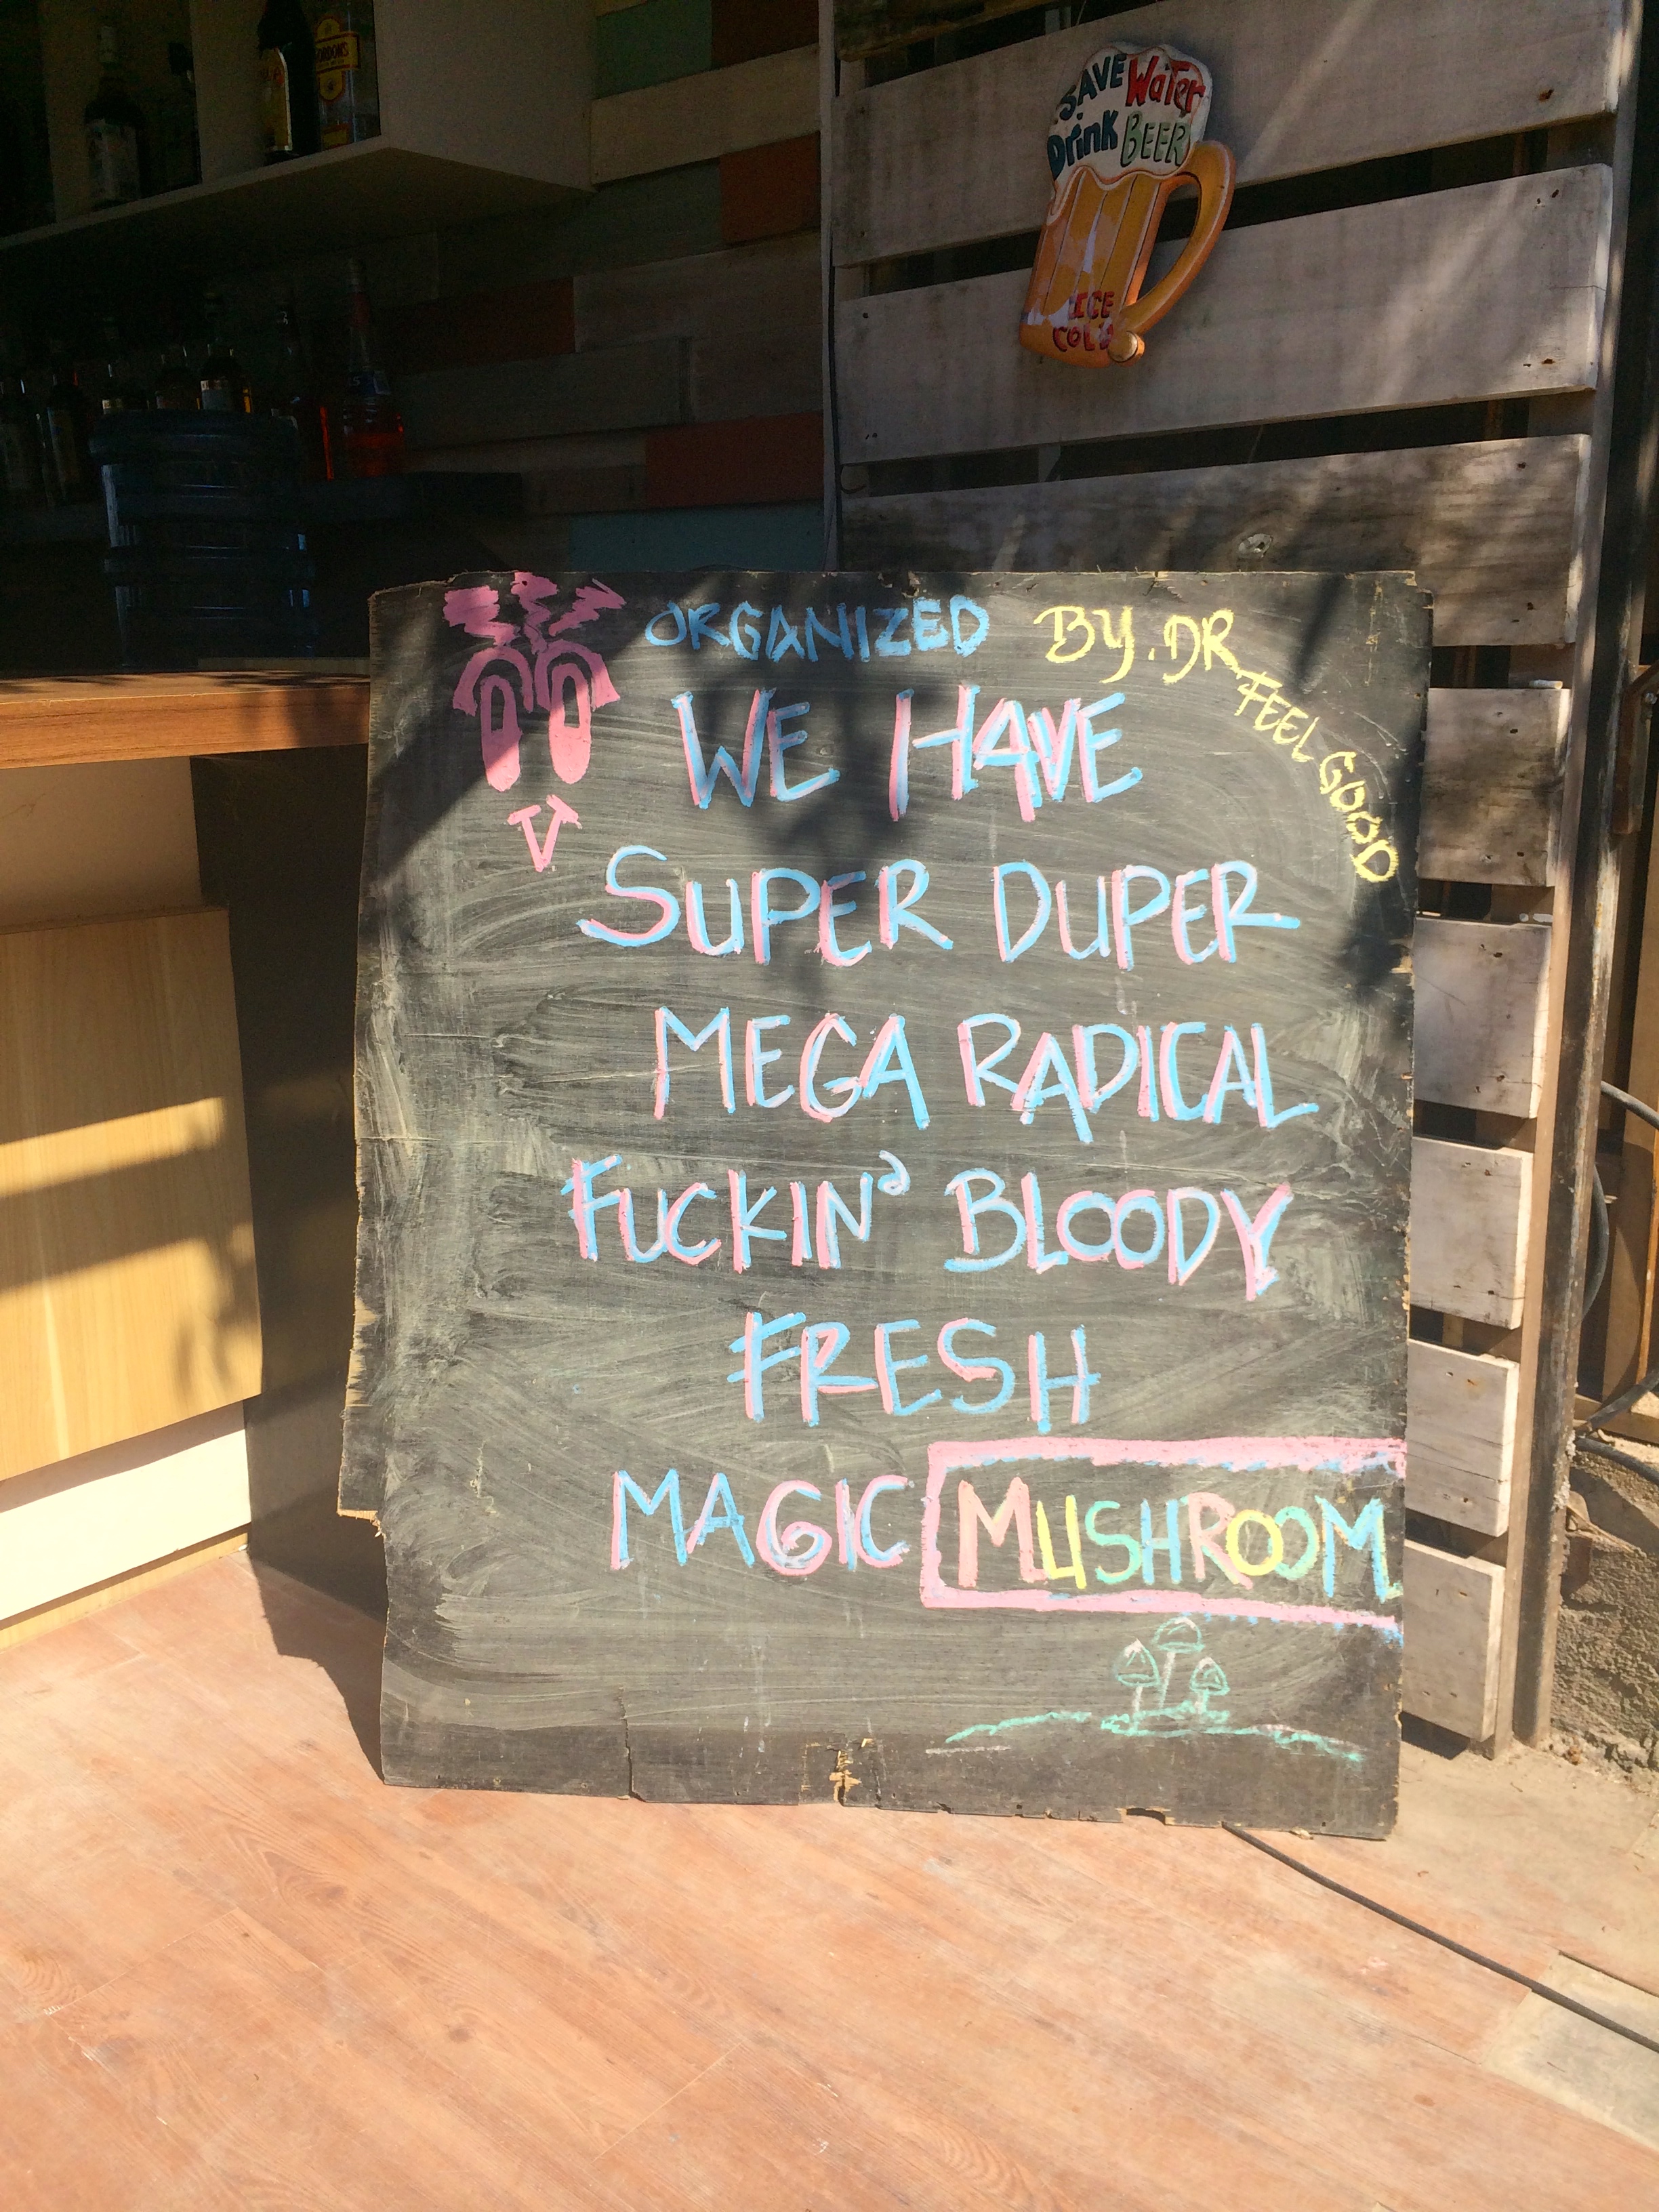 GORDON'S
SAVE Water
Drink BEER
ICE
COLD
ORGANIZED BY.DR FEEL GOOD
WE HAVE
SUPER DUPER
MEGA RADICAL
FUCKIN' BLOODY
FRESH
MAGIC MUSHROOM